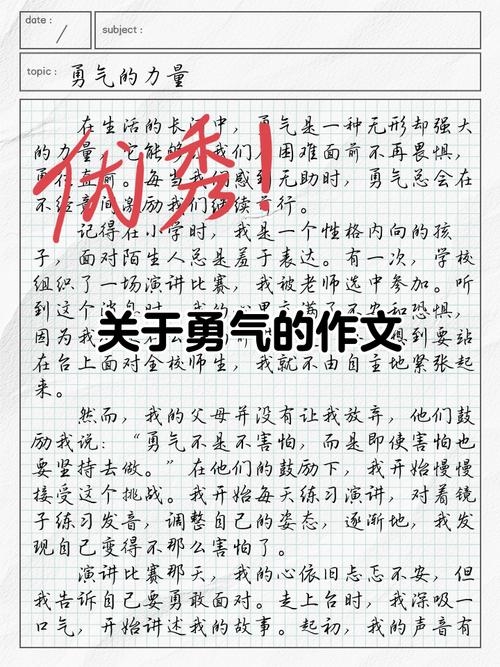 date :
subject :
topic : 勇气的力量
在生活的长河中，勇气是一种无形却强大
的力量，它能够让我们在困难面前不再畏惧，
勇往直前。每当我们感到无助时，勇气总会在
不经意间激励我们继续前行。
优秀！
记得在小学时，我是一个性格内向的孩
子，面对陌生人总是羞于表达。有一次，学校
组织了一场演讲比赛，我被老师选中参加。听
到这个消息时，我的心里充满了不安和恐惧，
因为我
想到要站
关于勇气的作文
在台上面对全校师生，我就不由自主地紧张起
来。
然而，我的父母并没有让我放弃，他们鼓
励我说：“勇气不是不害怕，而是即使害怕也
要坚持去做。”在他们的鼓励下，我开始慢慢
接受这个挑战。我开始每天练习演讲，对着镜
子练习发音，调整自己的姿态，逐渐地，我发
现自己变得不那么害怕了。
演讲比赛那天，我的心依旧忐忑不安，但
我告诉自己要勇敢面对。走上台时，我深吸一
口气，开始讲述我的故事。起初，我的声音有